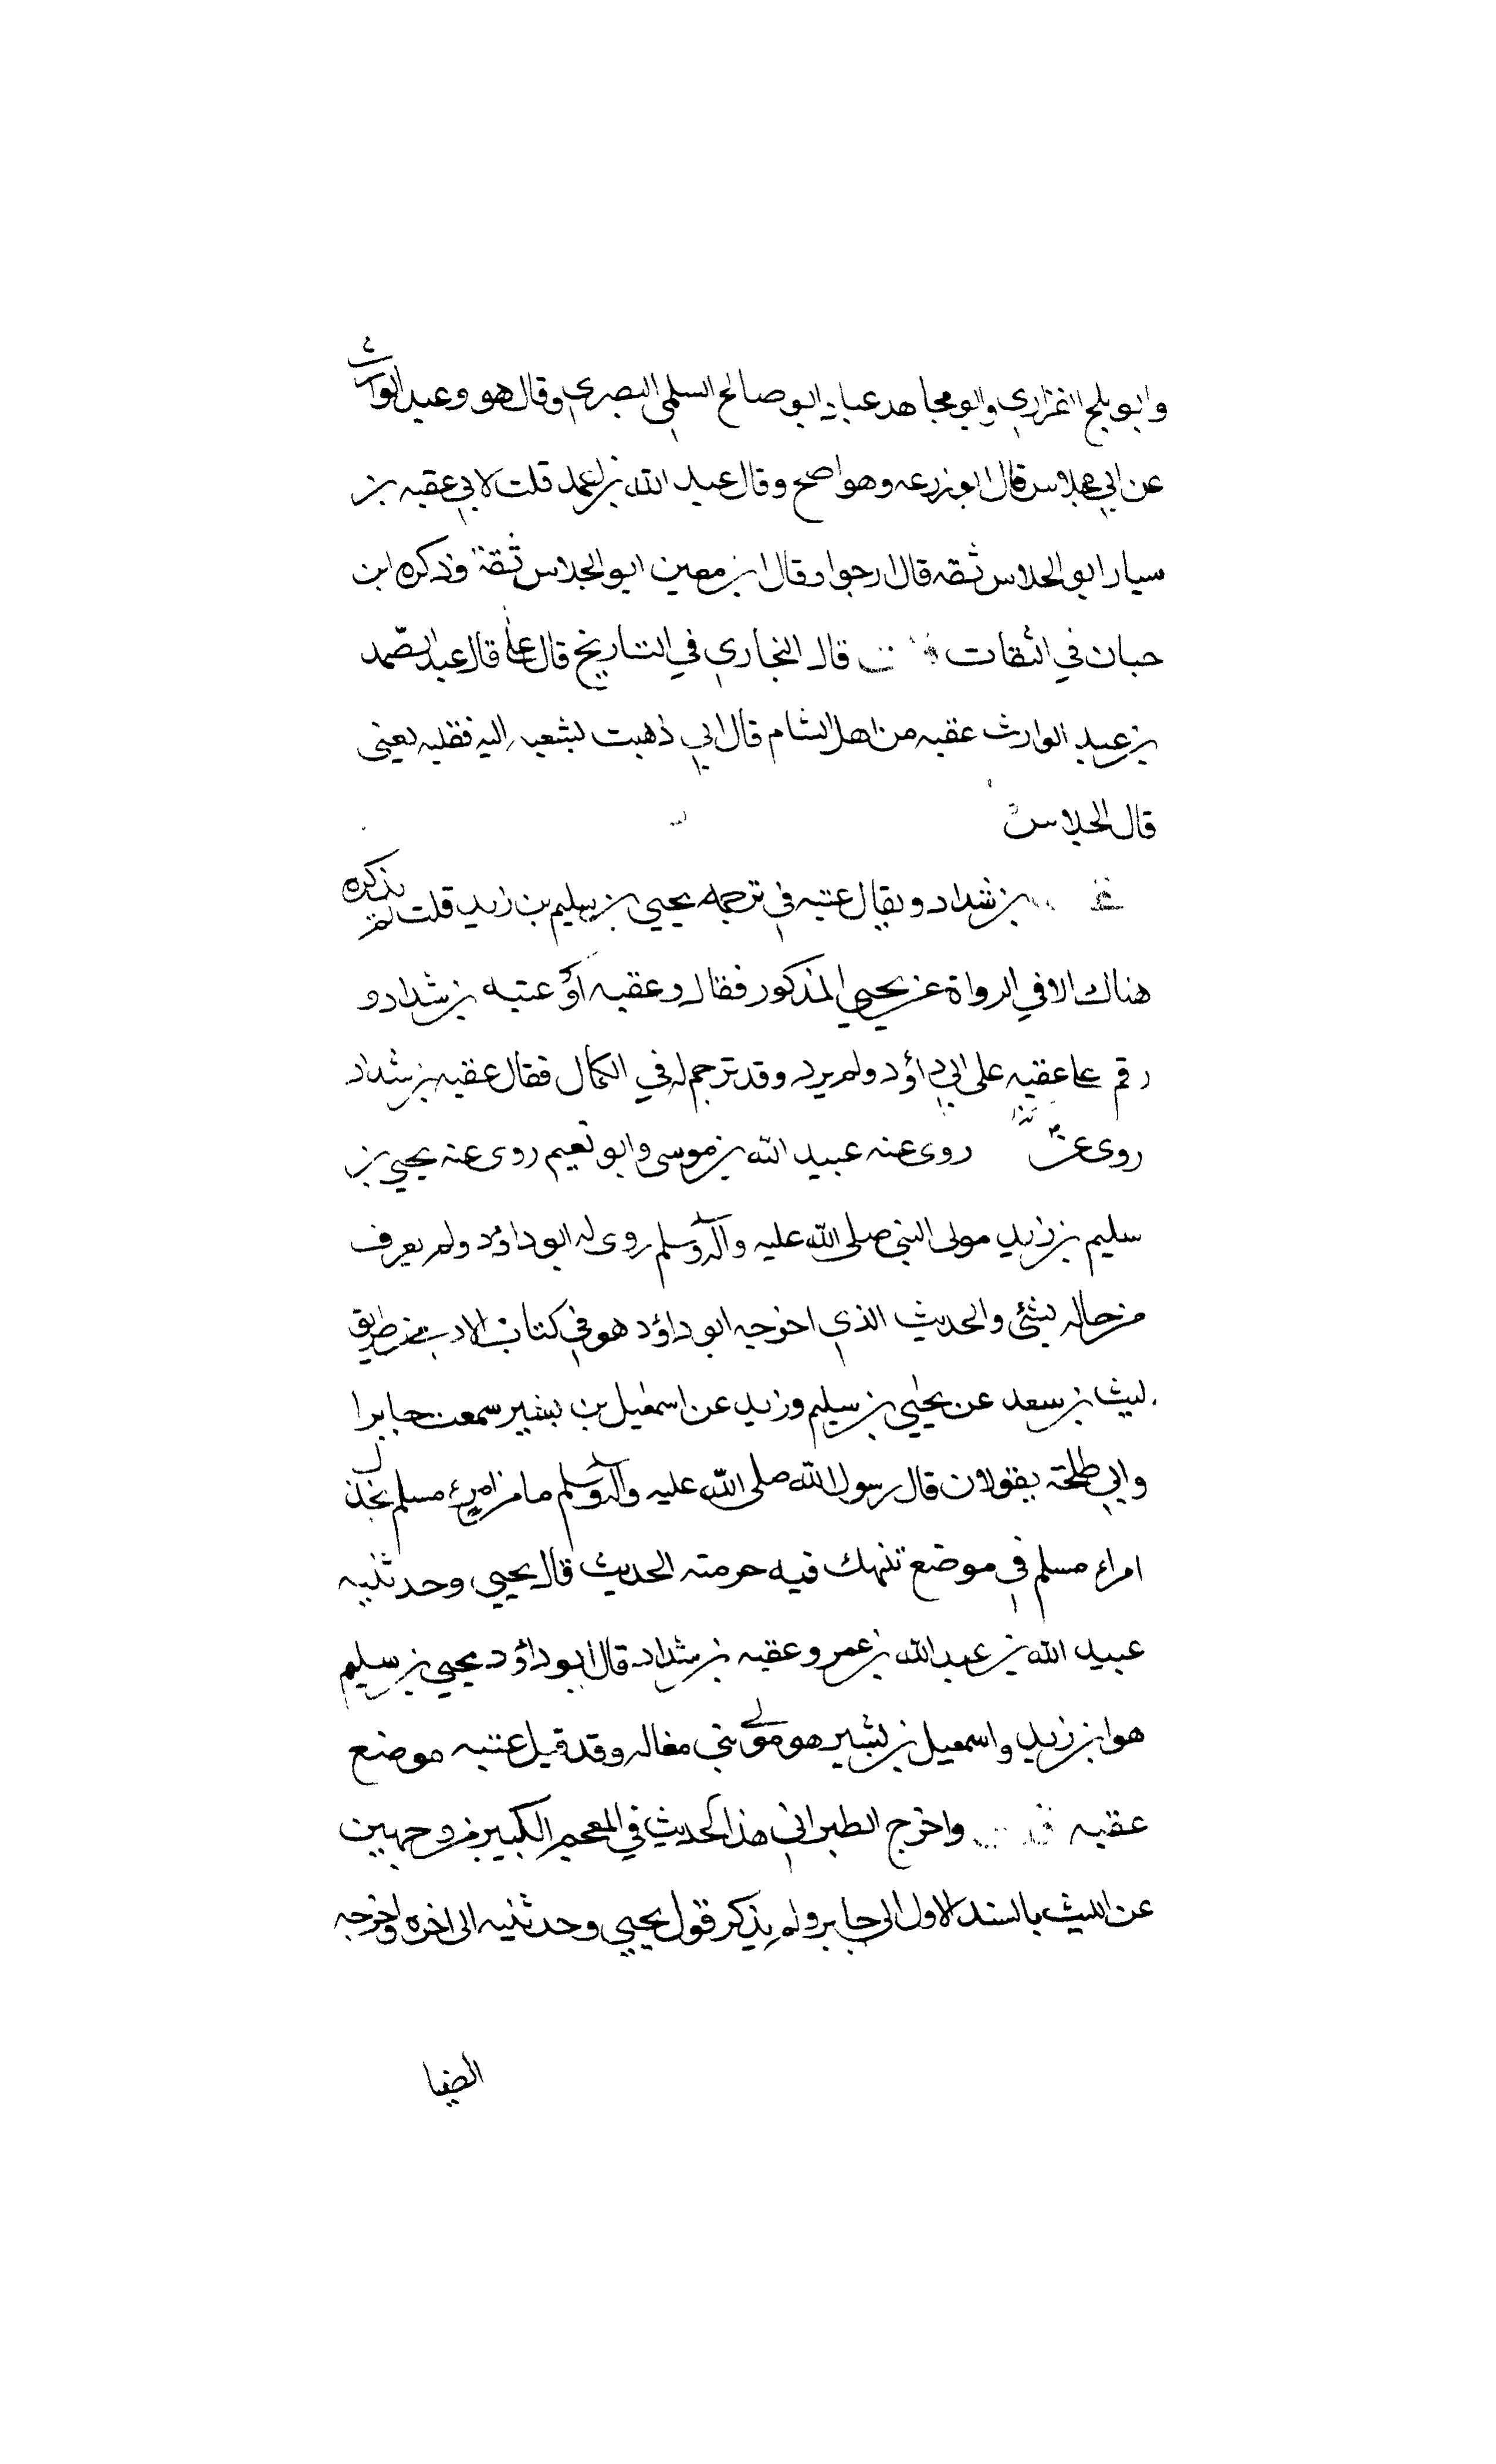 وابو بلج الفزاري وابو مجاهد عباد ابو صالح السلمي البصري وقال هو وعبد الوارث
عن ابي جلاس قال ابو زرعه وهو اصح وقال عبد الله بن احمد قلت لابي عقبه بن
سيار ابو الجلاس ثقه قال ارجوا وقال ابن معين ابو الجلاس ثقة وذكره ابن
حبان في الثقات قال البخاري في التاريخ قال علي قال عبد الصمد
بن عبد الوارث عقبه من اهل الشام قال ابي ذهبت بشعبه اليه فقلبه يعني
قال الجلاس
بن شداد ويقال عتبه في ترجمه يحيي بن سليم بن زيد قلت لم يذكره
هناك الا في الرواة عن يحيي المذكور فقال وعقبه او عتبه بن شداد و
رقم علي عقبه على ابي داؤد ولم يرد وقد ترجم له في الكمال فقال عقبه بن شداد
روى عن روى عنه عبيد الله بن موسى وابو نعيم روى عنه يحيي بن
سليم بن زيد مولى النبي صلى الله عليه وآله وسلم روى له ابو داؤد ولم يعرف
من حاله بشئ والحديث الذي اخرجه ابو داؤد هو في كتاب الادب من طريق
ليث بن سعد عن يحيي بن سليم وزيد عن اسمعيل بن بشير سمعت جابرا
وابي طلحة يقولان قال رسول الله صلى الله عليه وآله وسلم ما من امرئ مسلم يخذل
امراء مسلم في موضع تنهك فيه حرمته الحديث قال يحيي وحدثنيه
عبيد الله بن عبد الله بن عمر وعقبه بن شداد قال ابو داؤد يحيي بن سليم
هو ابن زيد واسمعيل بن بشير هو مولى بني مغاله وقد قيل عتبه موضع
عقبه واخرج الطبراني هذا الحديث في المعجم الكبير من وجهين
عن الليث بالسند الاول الى جابر ولم يذكر قول يحيي وحدثنيه الى اخره واخرجه
الضيا